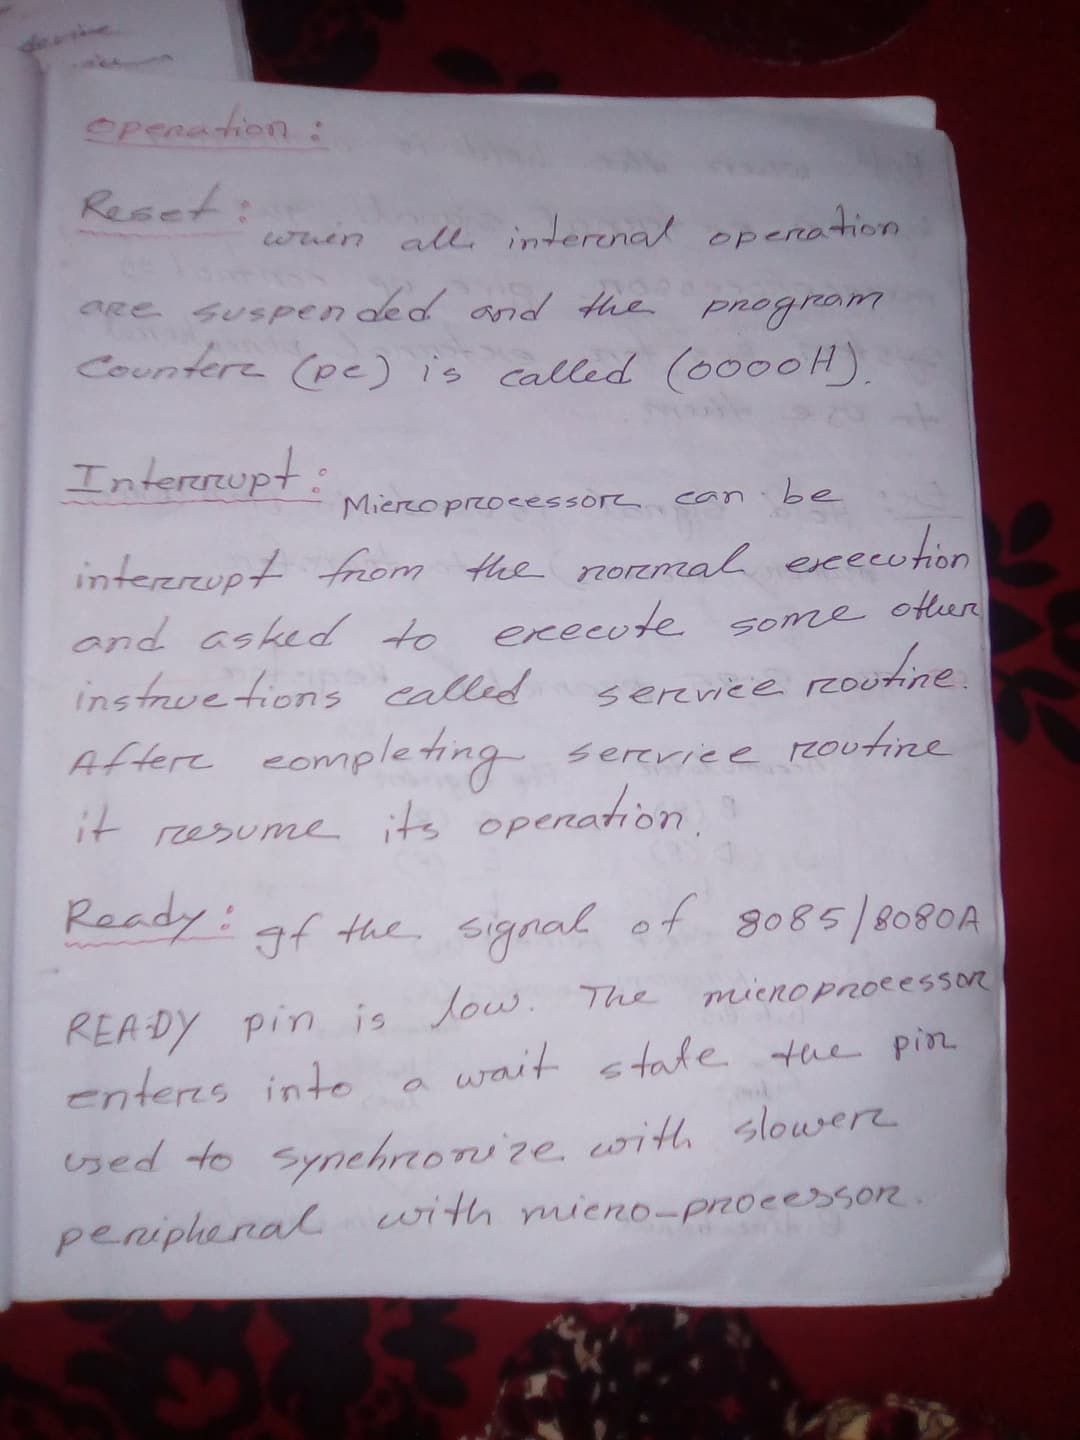 Operation:
Reset:
when all internal operation
are suspended and the program
Counter (pc) is called (0000H).
Interrupt:
Microprocessor can be
interrupt from the normal execution
and asked to execute some other
instructions called service routine.
After completing service routine
it resume its operation.
Ready: If the signal of 8085/8080A
READY pin is low. The microprocessor
enters into a wait state the pin
used to synchronize with slower
peripheral with micro-processor.